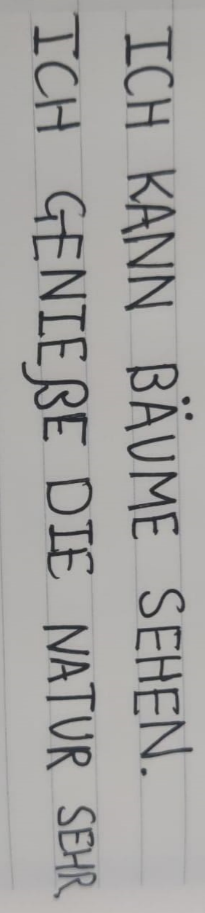 ICH KANN BÄUME SEHEN.
ICH GENIEßE DIE NATUR SEHR.